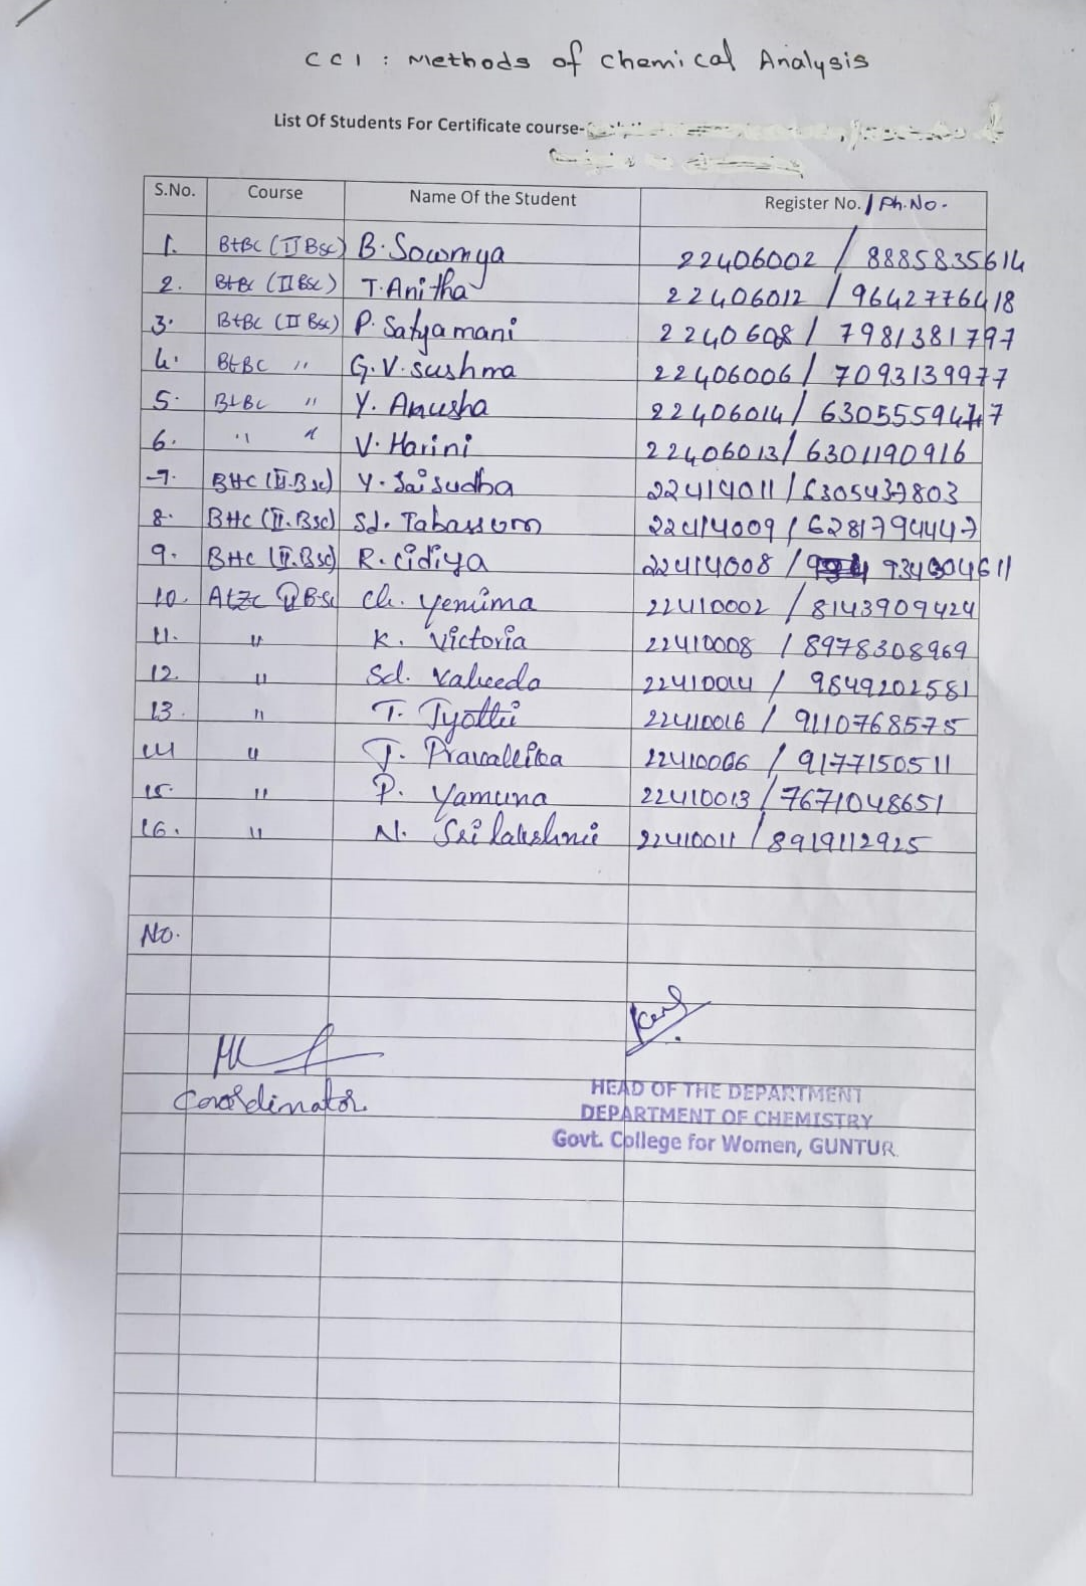 CC1 : Methods of Chemical Analysis
List Of Students For Certificate course-
S.No. Course Name Of the Student Register No. / Ph.No.
1. BtBC (II BSC) B. Sowmya 22406002 / 8885835614
2. BtBC (II BSC) T. Anitha 22406012 / 9642776418
3. BtBC (II BSC) P. Satyamani 2240608 / 7981381797
4. BtBC " G.V. sushma 22406006 / 7093139977
5. BtBC " Y. Anusha 22406014 / 6305559447
6. " " V. Harini 22406013 / 6301190916
7. BHC (II.BSC) Y. Saisudha 22414011 / 6305437803
8. BHC (II.BSC) Sd. Tabassum 22414009 / 6281794447
9. BHC (II.BSC) R. Cidiya 22414008 / 934304611
10. AtZC II BSc Ch. Yemima 22410002 / 8143909424
11. " K. Victoria 22410008 / 8978308969
12. " Sd. Vaheeda 22410014 / 9849202581
13. " T. Jyothi 22410016 / 9110768575
14 " T. Pravallika 22410066 / 9177150511
15. " P. Yamuna 22410013 / 7671048651
16. " N. Sri lakshmi 22410011 / 8919112925
No.
Coordinator
HEAD OF THE DEPARTMENT
DEPARTMENT OF CHEMISTRY
Govt. College for Women, GUNTUR